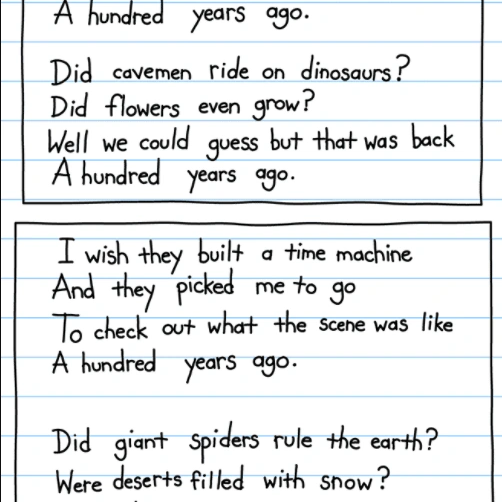 A hundred years ago.
Did cavemen ride on dinosaurs?
Did flowers even grow?
Well we could guess but that was back
A hundred years ago.
I wish they built a time machine
And they picked me to go
To check out what the scene was like
A hundred years ago.
Did giant spiders rule the earth?
Were deserts filled with snow?